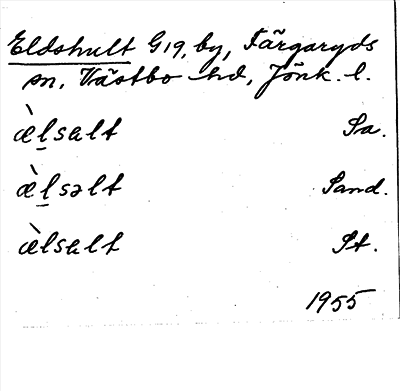 Eldshult G19, by, Färgaryds
sn, Västbo hd, Jönk. l.
æ̀l̠salt Sa.
æ̀l̠səlt Sand.
æ̀lsalt St.
1955